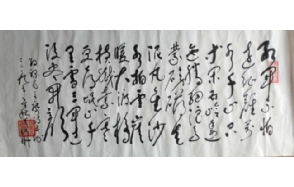 红军不怕
远征难万
水千山只
等闲五岭
逶迤腾细浪乌
蒙磅礴走
泥丸金沙
水拍云崖
暖大渡桥
横铁索寒
更喜岷山千
里雪三军
过后尽开颜